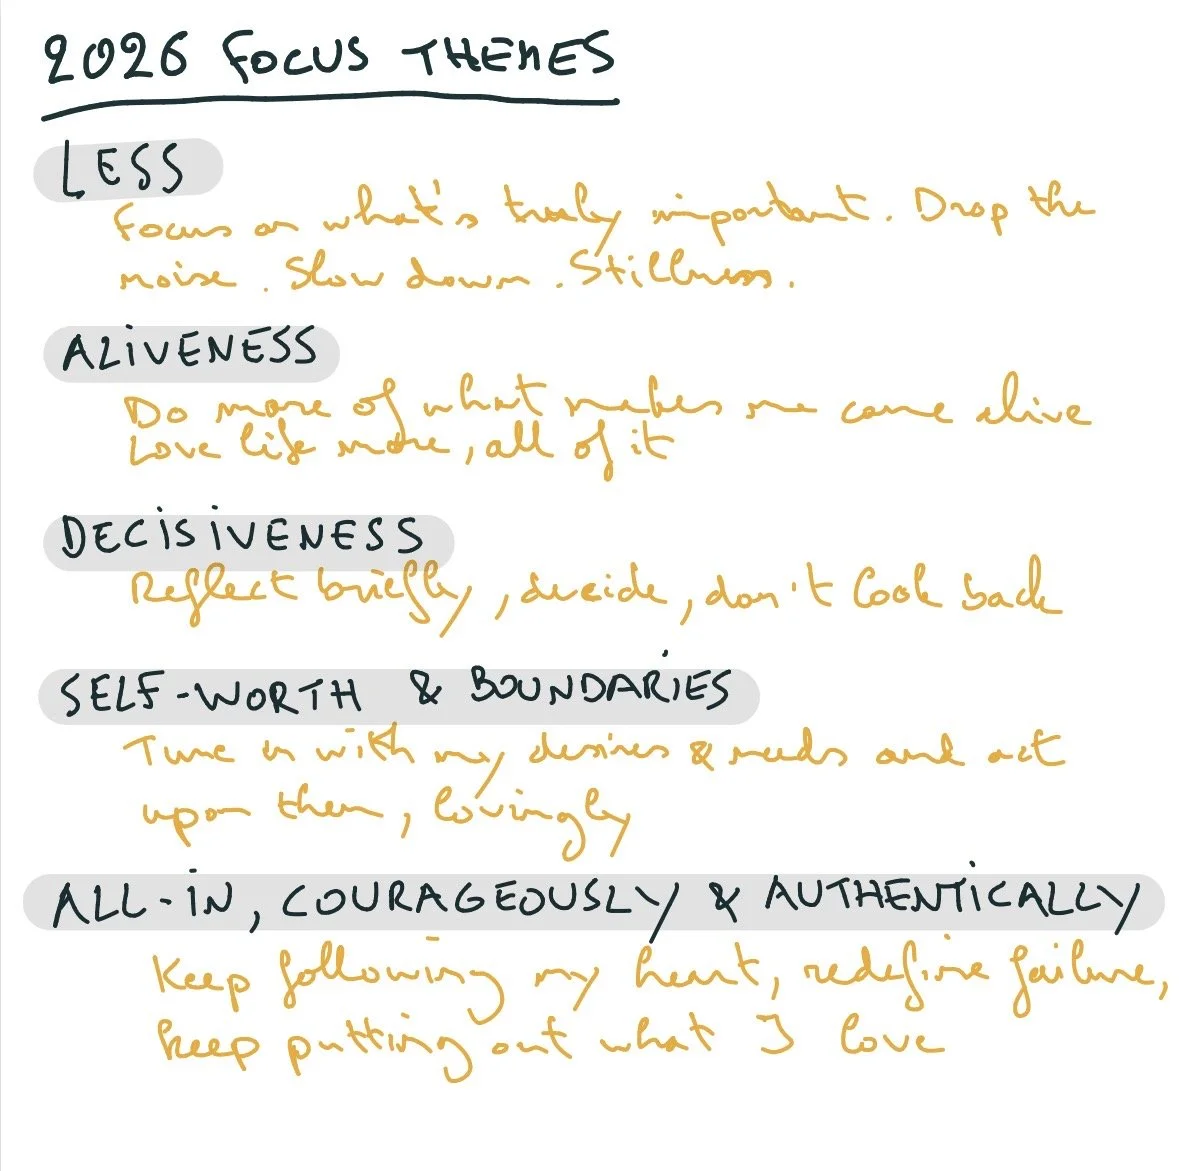 2026 FOCUS THEMES
LESS
Focus on what's truly important. Drop the
noise. Slow down. Stillness.
ALIVENESS
Do more of what makes me come alive
Love life more, all of it
DECISIVENESS
Reflect briefly, decide, don't look back
SELF-WORTH & BOUNDARIES
Tune in with my desires & needs and act
upon them, lovingly
ALL-IN, COURAGEOUSLY & AUTHENTICALLY
Keep following my heart, redefine failure,
keep putting out what I love